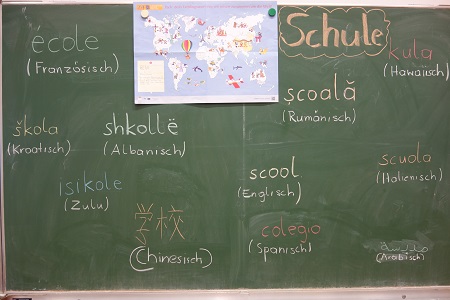 Schule
école
(Französisch)
kula
(Hawaiisch)
școală
(Rumänisch)
škola
(Kroatisch)
shkollë
(Albanisch)
scool
(Englisch)
scuola
(Italienisch)
isikole
(Zulu)
学校
(Chinesisch)
colegio
(Spanisch)
مدرسة
(Arabisch)